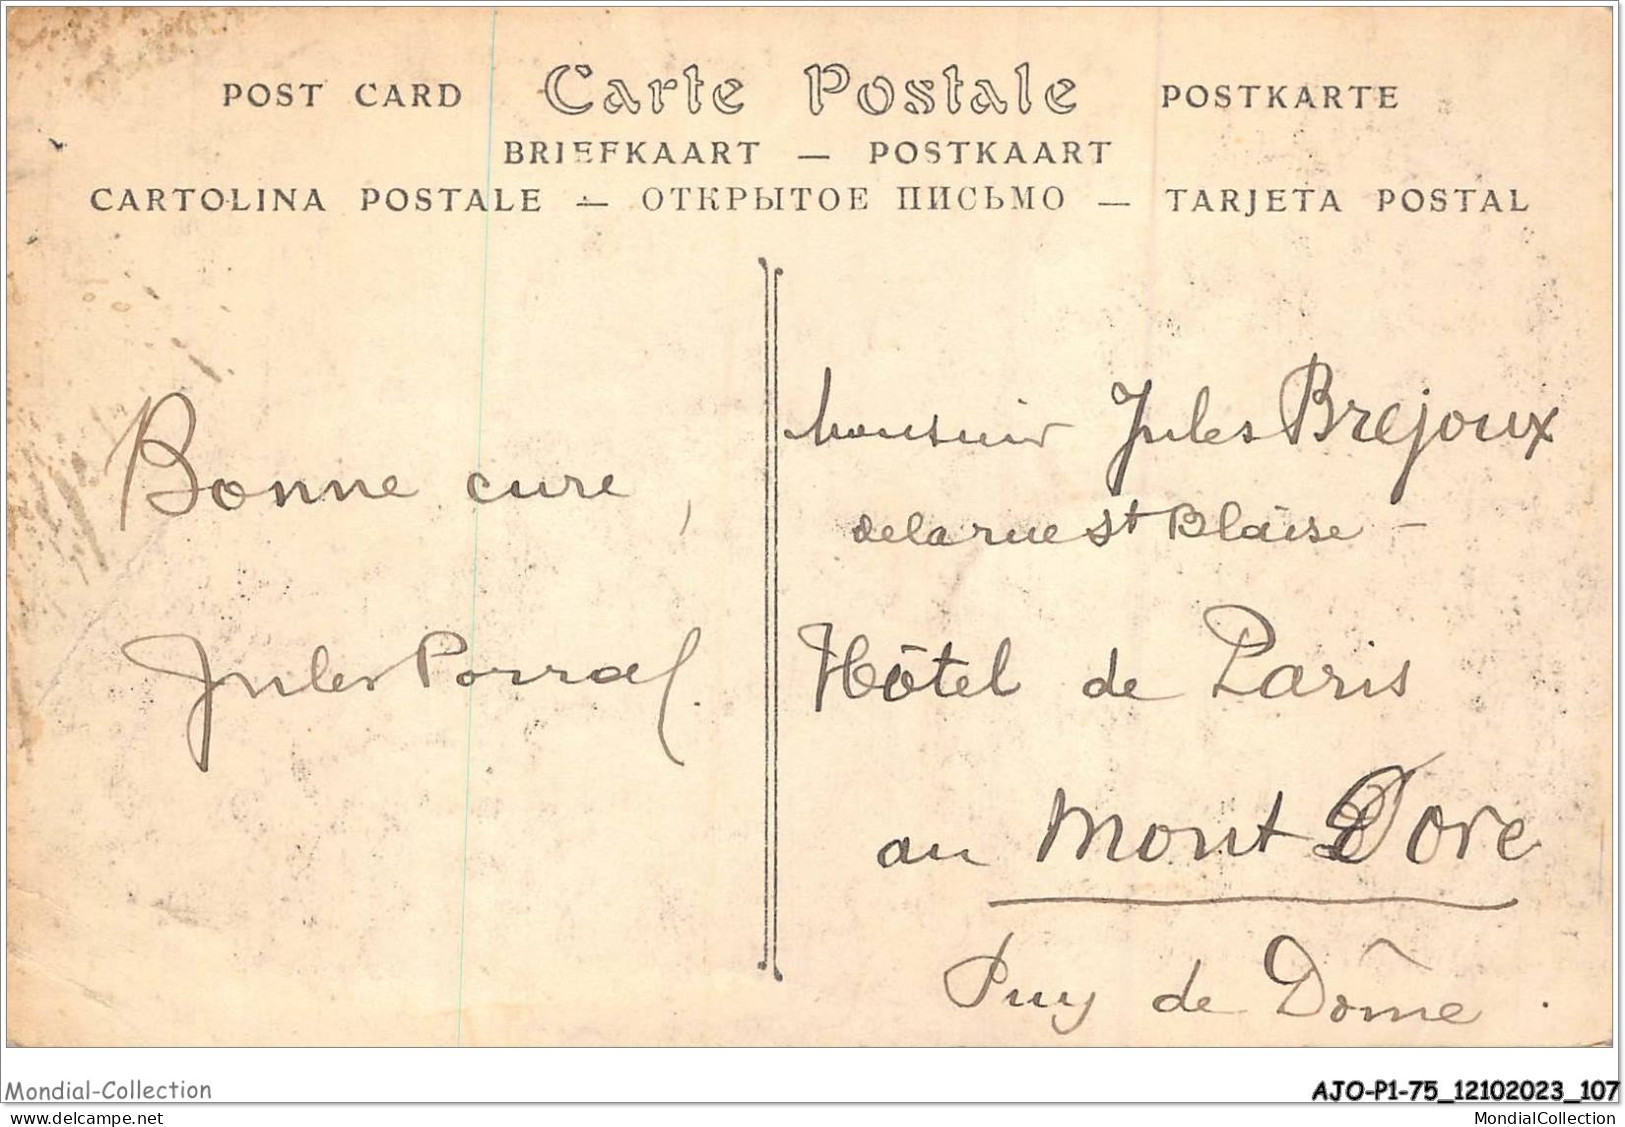 POST CARD Carte Postale POSTKARTE
BRIEFKAART — POSTKAART
CARTOLINA POSTALE — ОТКРЫТОЕ ПИСЬМО — TARJETA POSTAL
Bonne cure,
Jules Porral.
Monsieur Jules Brejoux
de la rue St Blaise —
Hôtel de Paris
au Mont Dore
Puy de Dôme.
Mondial-Collection
AJO-P1-75_12102023_107
www.delcampe.net
MondialCollection